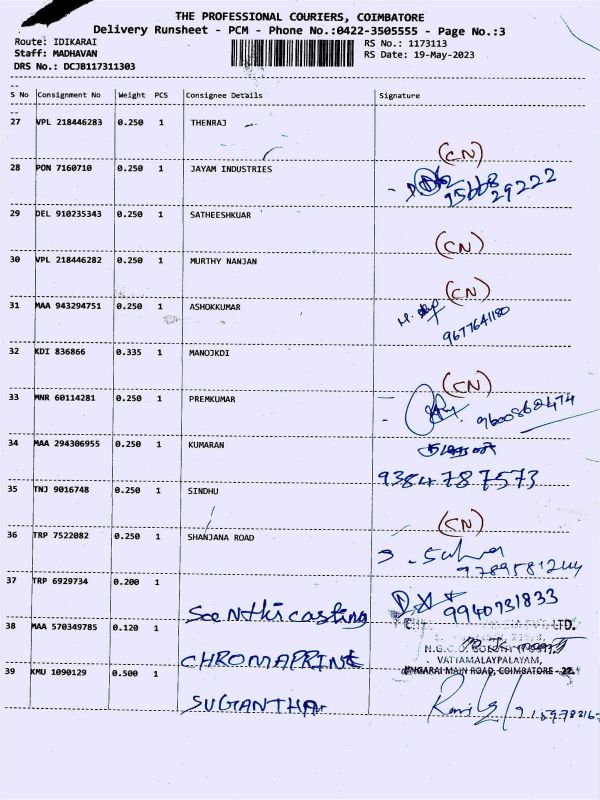 THE PROFESSIONAL COURIERS, COIMBATORE
Delivery Runsheet - PCM - Phone No.:0422-3505555 - Page No.:3
Route: IDIKARAI RS No.: 1173113
Staff: MADHAVAN RS Date: 19-May-2023
DRS No.: DCJB117311303
S No Consignment No Weight PCS Consignee Details Signature
27 VPL 218446283 0.250 1 THENRAJ
(CN)
28 PON 7160710 0.250 1 JAYAM INDUSTRIES
95668 29222
29 DEL 910235343 0.250 1 SATHEESHKUAR
(CN)
30 VPL 218446282 0.250 1 MURTHY NANJAN
(CN)
31 MAA 943294751 0.250 1 ASHOKKUMAR
9677641180
32 KDI 836866 0.335 1 MANOJKDI
(CN)
33 MNR 60114281 0.250 1 PREMKUMAR
9600868474
34 MAA 294306955 0.250 1 KUMARAN
9384787573
35 TNJ 9016748 0.250 1 SINDHU
(CN)
36 TRP 7522082 0.250 1 SHANJANA ROAD
37 TRP 6929734 0.200 1
Sce Nthi casting 9940731833
38 MAA 570349785 0.120 1
CHROMAPRINt
N.G.G.O. COLONY POST
VATTAMALAYPALAYAM,
39 KMU 1090129 0.500 1 MAIN ROAD, COIMBATORE - 22.
SUGANTHA